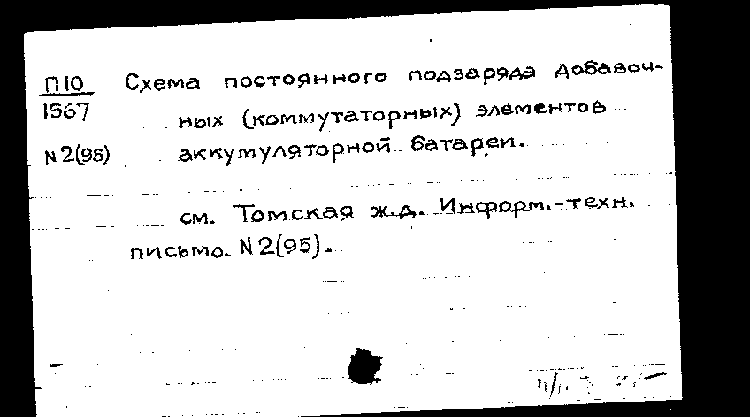 П10 Схема постоянного подзаряда добавоч-
1567 ных (коммутаторных) элементов
N2(95) аккумуляторной батареи.
см. Томская ж.д. Информ.-техн.
письмо. N2(95).